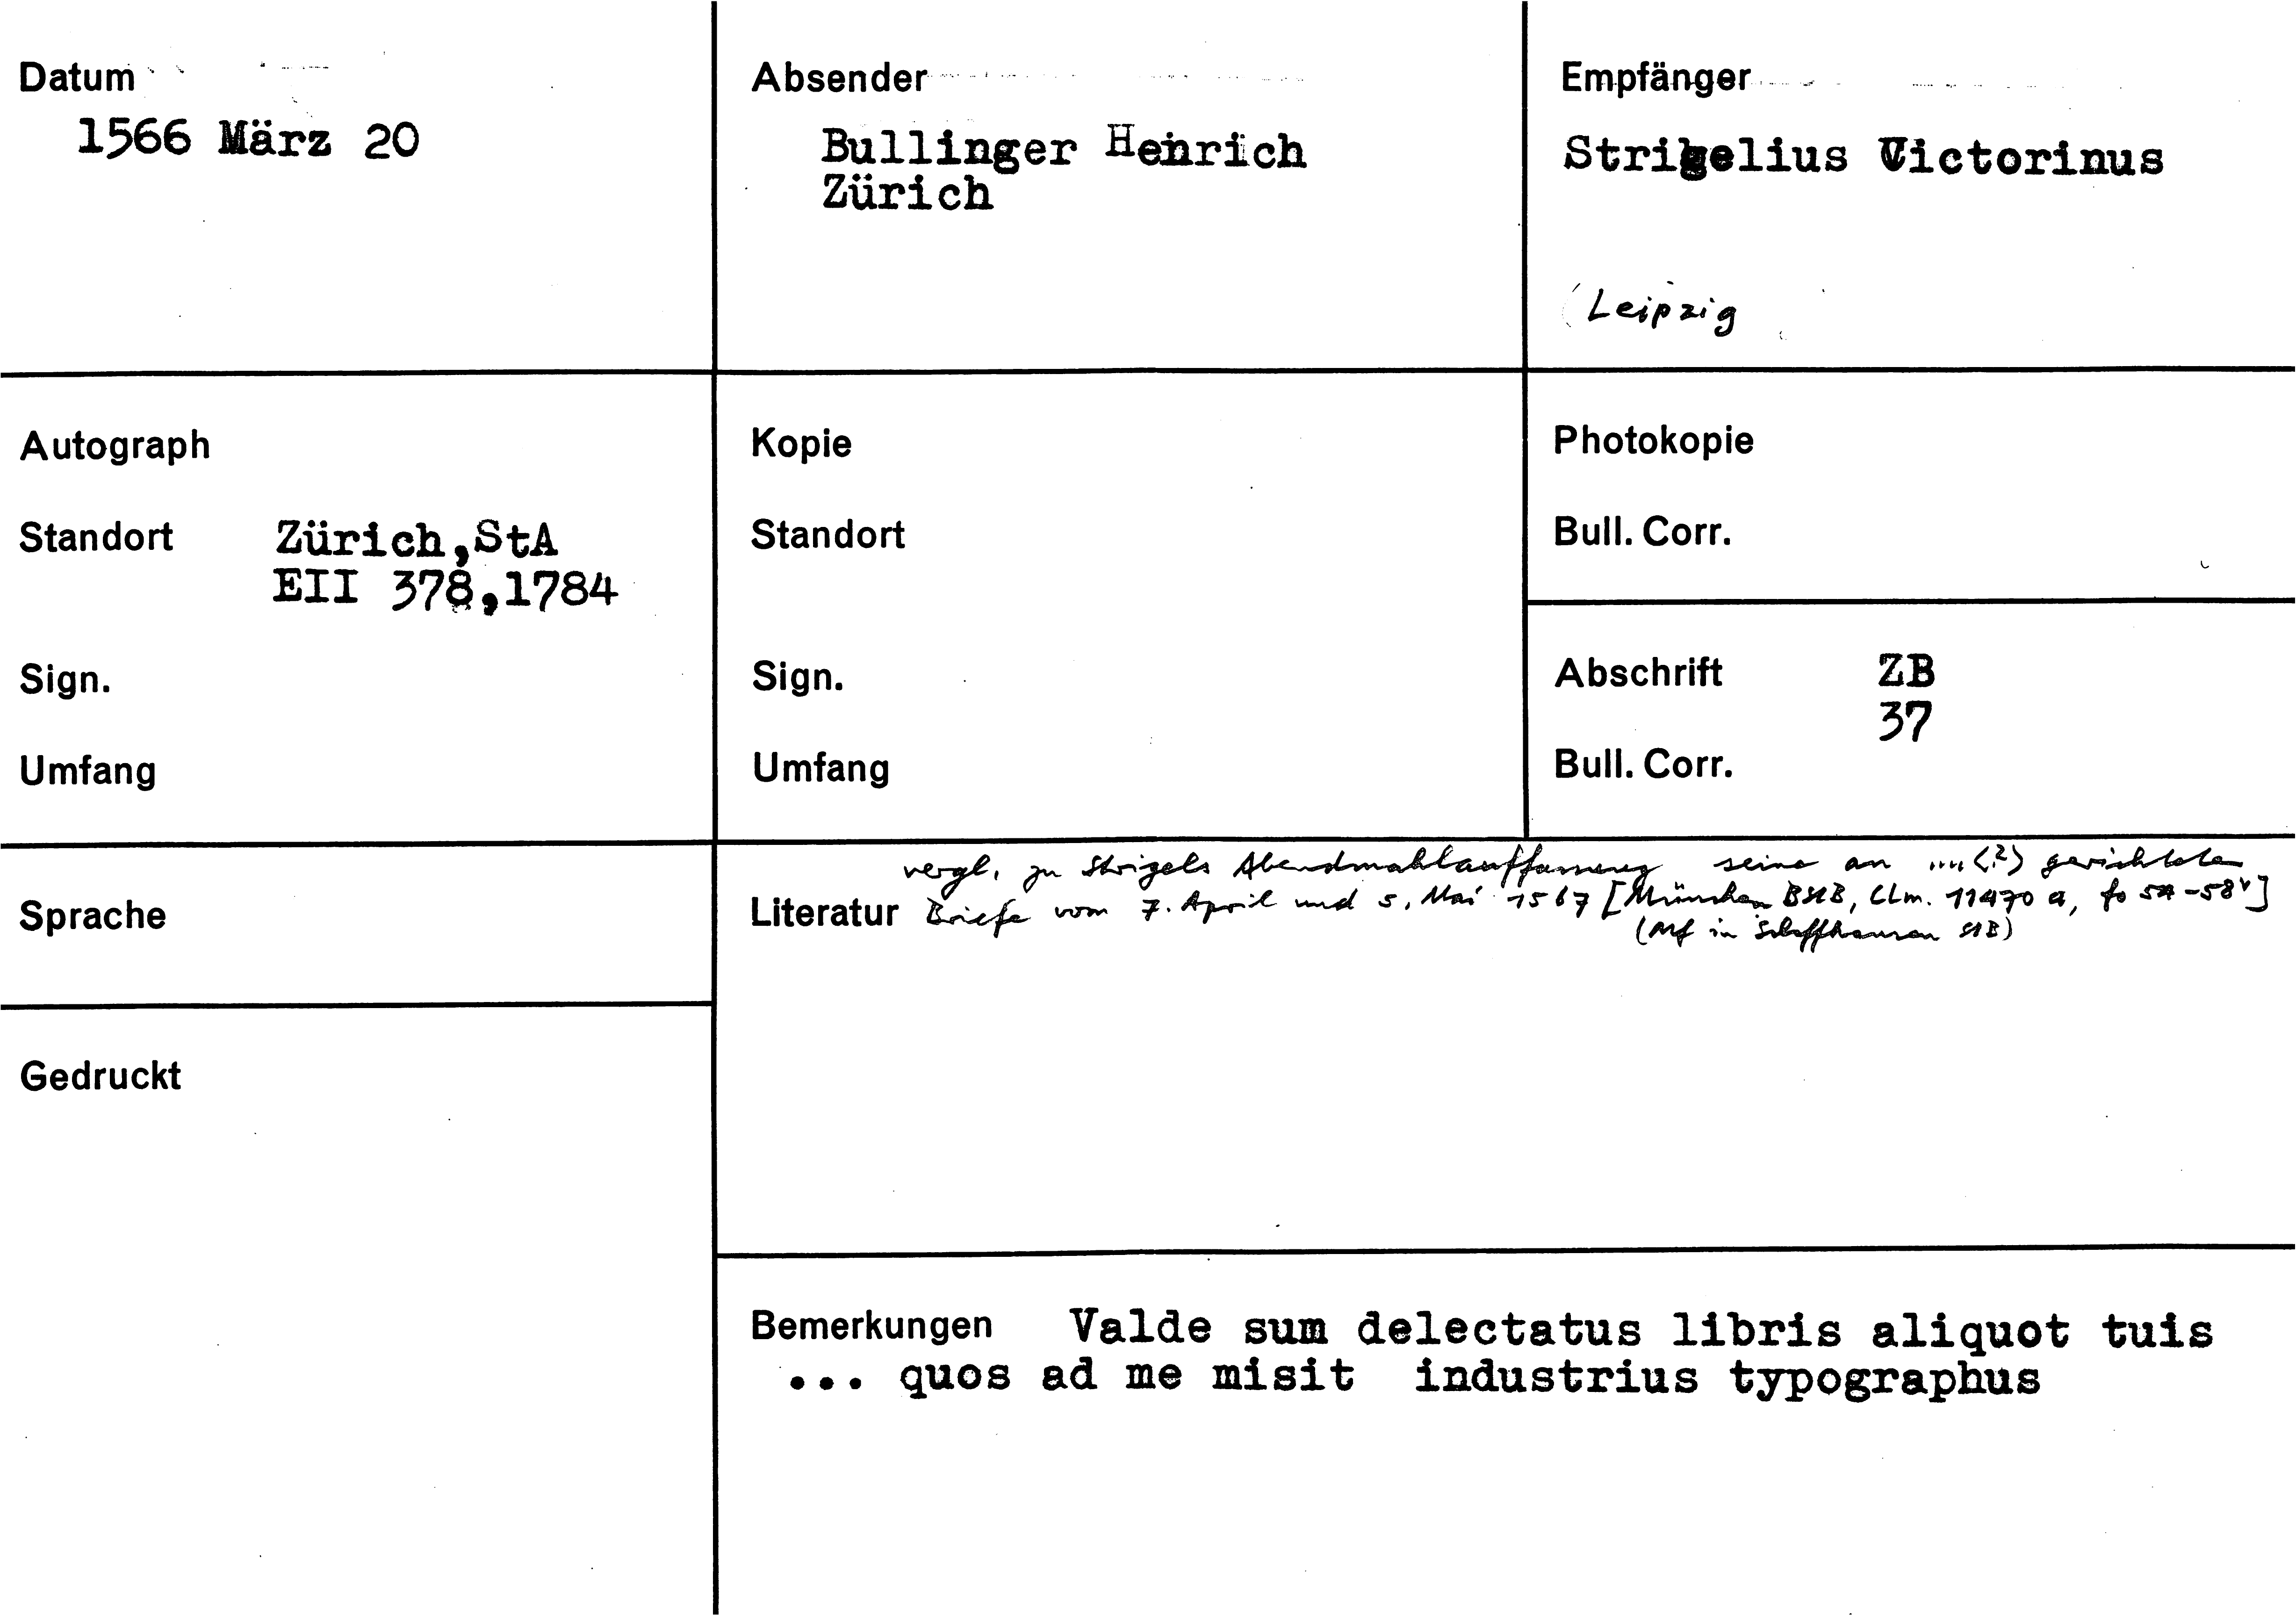 Datum
1566 März 20
Absender
Bullinger Henrich
Zürich
Empfänger
Strigelius Victorinus
(Leipzig
Autograph
Standort Zürich,StA
EII 378,1784
Sign.
Umfang
Kopie
Standort
Sign.
Umfang
Photokopie
Bull. Corr.
Abschrift ZB
37
Bull. Corr.
Sprache
Gedruckt
vergl. zu Strigels Abendmahlauffassung seine an ....(?) gerichteten
Literatur Briefe vom 7. April und 5. Mai 1567 [München BStB, CLm. 11470 a, fo -58v]
(Mf in Schaffhausen StB)
Bemerkungen Valde sum delectatus libris aliquot tuis
... quos ad me misit industrius typographus